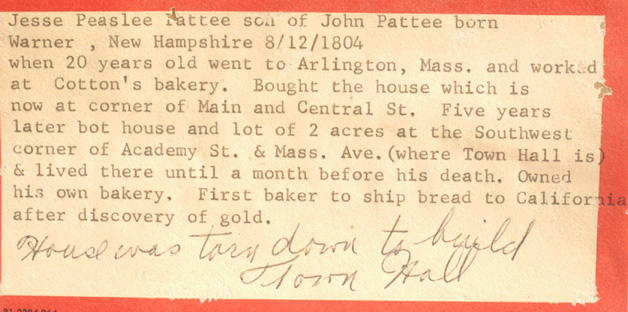 Jesse Peaslee Pattee son of John Pattee born
Warner , New Hampshire 8/12/1804
when 20 years old went to Arlington, Mass. and worked
at Cotton's bakery.  Bought the house which is
now at corner of Main and Central St.  Five years
later bot house and lot of 2 acres at the Southwest
corner of Academy St. & Mass. Ave.(where Town Hall is)
& lived there until a month before his death. Owned
his own bakery.  First baker to ship bread to California
after discovery of gold.
House was torn down to build
Town Hall